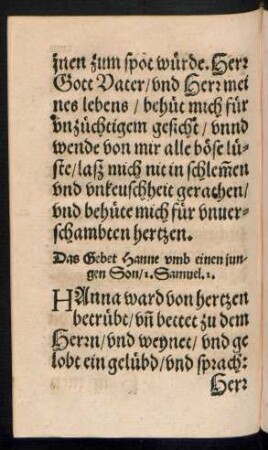 jnen zum spot würde. Herr
Gott Vater/ vnd Herr mei
nes lebens / behüt mich für
vnzüchtigem gesicht / vnnd
wende von mir alle böse lü-
ste/ lasz mich nit in schlem̃en
vnd vnkeuschheit geraten/
vnd behüte mich für vnuer-
schambten hertzen.
Das Gebet Hanne vmb einen jun-
gen Son/ 1. Samuel. 1.
HAnna ward von hertzen
betrübt/ vñ bettet zu dem
Herrn/ vnd weynet/ vnd ge
lobt ein gelübd/ vnd sprach:
Herr